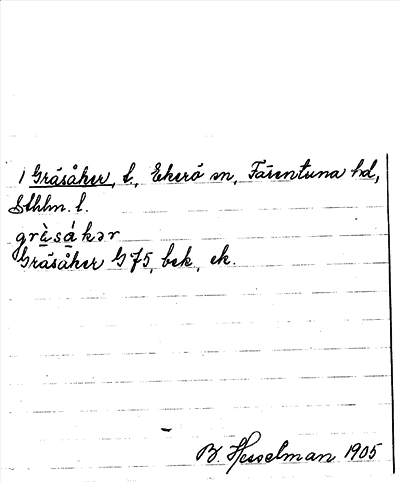 1 Gräsåker, t., Ekerö sn, Färentuna hd,
Sthlm. l.
grèsákər
Gräsåker G 75, bek, ek.
B. Hesselman 1905